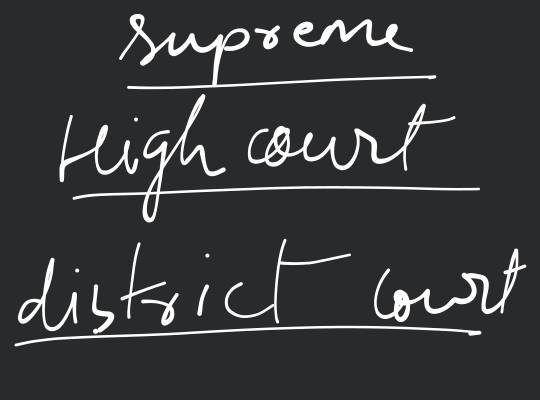 supreme
High court
district court